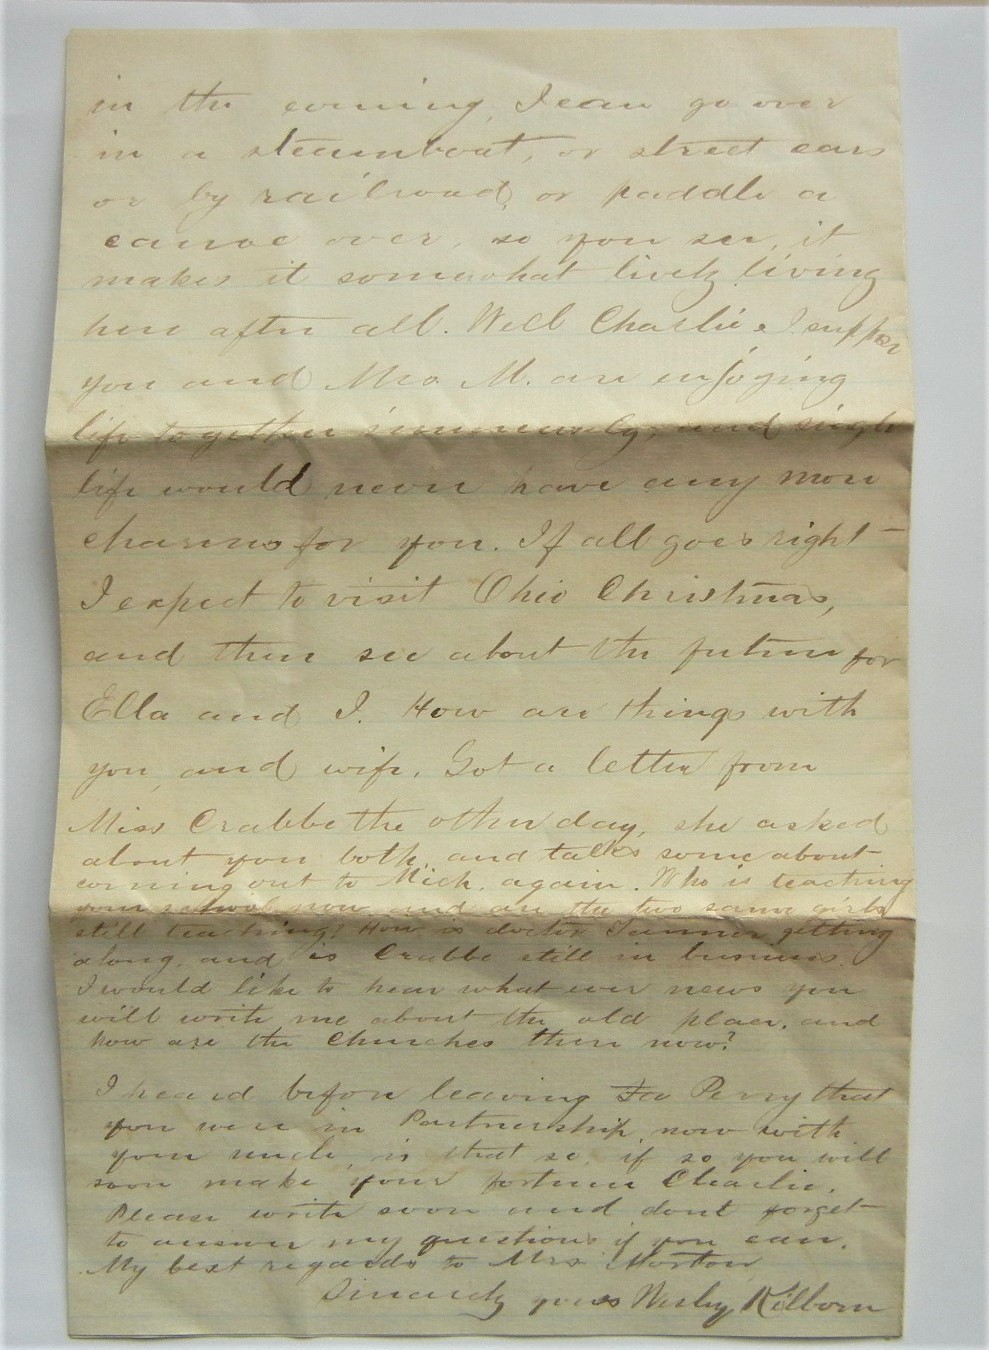 in the evening, I can go over
in a steamboat, or street cars
or by railroad, or paddle a
canoe over, so you see, it
makes it somewhat lively living
here after all. Well Charlie, I suppose
you and Mrs M. are enjoying
life together immensely, and single
life would never have any more
charms for you. If all goes right
I expect to visit Ohio Christmas,
and then see about the future for
Ella and I. How are things with
you, and wife. Got a letter from
Miss Crabbe the other day, she asked
about you both, and talks some about
coming out to Mich. again. Who is teaching
your school now and are the two same girls
still teaching? How is doctor Tanner getting
along, and is Crabbe still in business.
I would like to hear what ever news you
will write me about the old place, and
how are the Churches there now?
I heard before leaving Perry that
you were in Partnership now with
your uncle, is that so, if so you will
soon make your fortune Charlie.
Please write soon and dont forget
to answer my questions if you can.
My best regards to Mrs Morton
Sincerely yours Wesley Kilborn